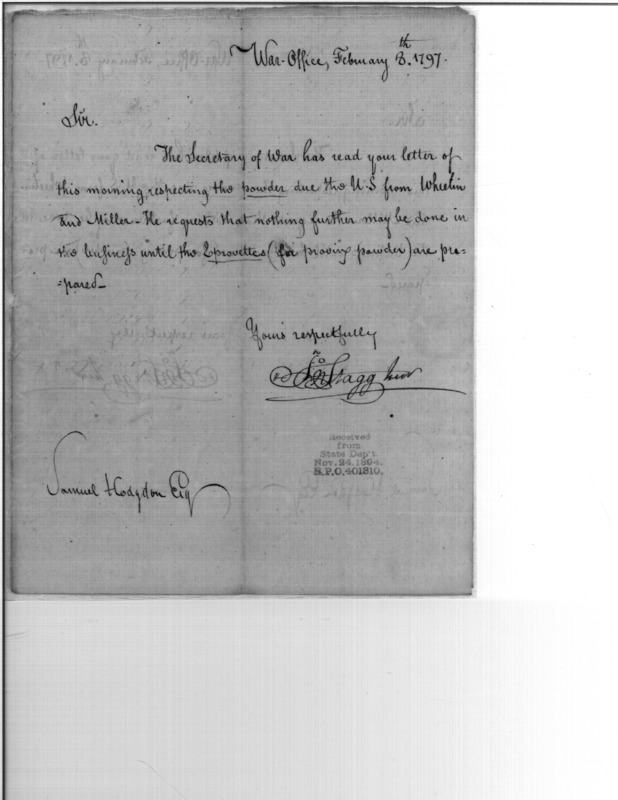 War-Office, February 8.th 1797.
Sir.
The Secretary of War has read your letter of
this morning, respecting the powder due the U.S from Wheelin
and Miller - He requests that nothing further may be done in
the business until the Eprovettes (for proving powder) are pre=
=pared -
Yours respectfully
Jno Stagg Junr
Received
from
State Dep't.
Nov. 24. 1894.
R.P.O. 401810.
Samuel Hodgdon Esq